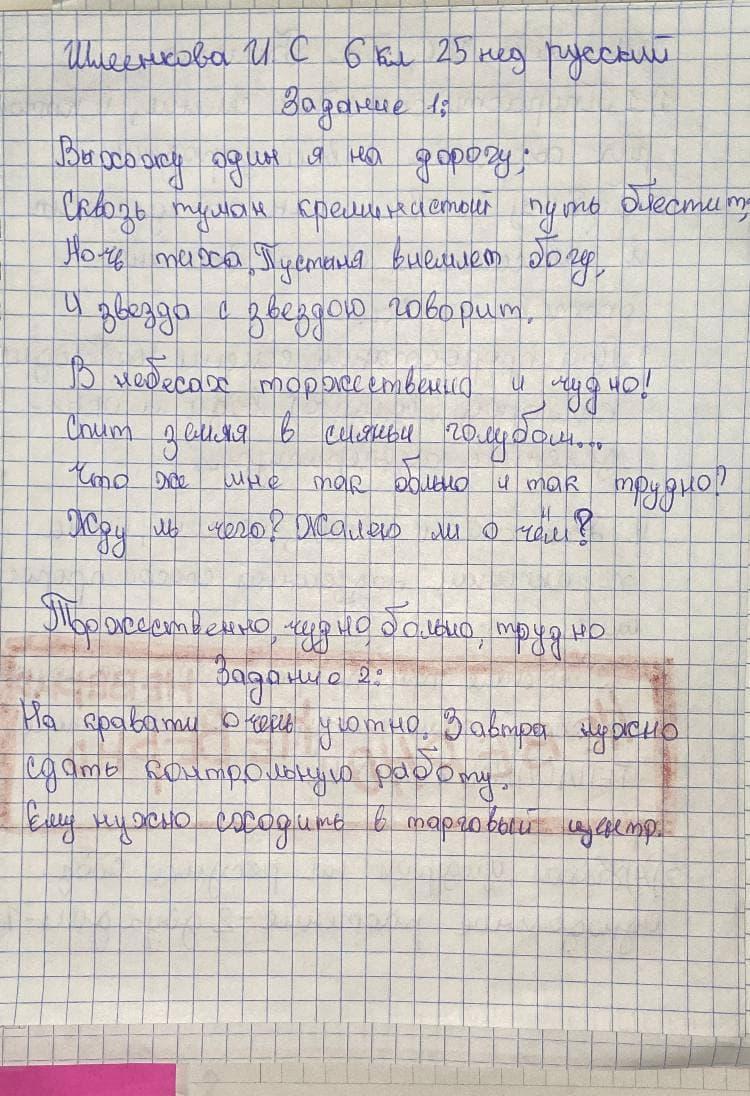 Шлеенкова И С 6 кл 25 нед русский
Задание 1:
Выхожу один я на дорогу;
Сквозь туман кремнистый путь блестит;
Ночь тиха. Пустыня внемлет богу,
И звезда с звездою говорит.
В небесах торжественно и чудно!
Спит земля в сияньи голубом...
Что же мне так больно и так трудно?
Жду ль чего? Жалею ли о чём?
Торжественно, чудно, больно, трудно
Задание 2:
На кравати очень уютно. Завтра нужно
сдать контрольную работу.
Ему нужно сходить в тарговый центр.